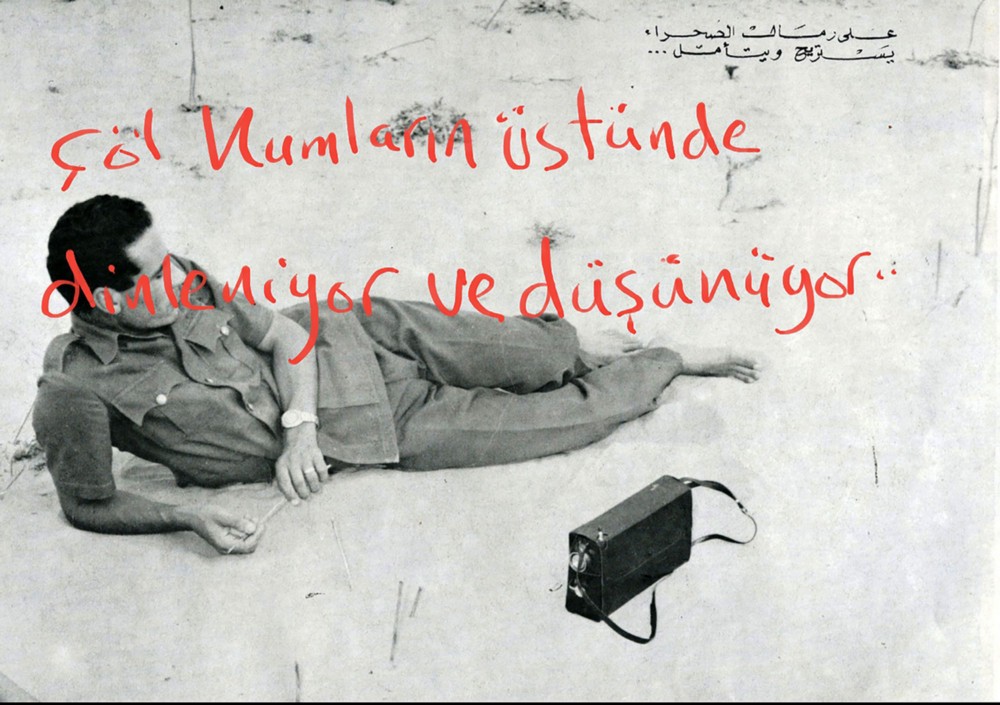 على رمال الصحراء
يستريح ويتأمل...
çöl Kumların üstünde
dinleniyor ve düşünüyor..